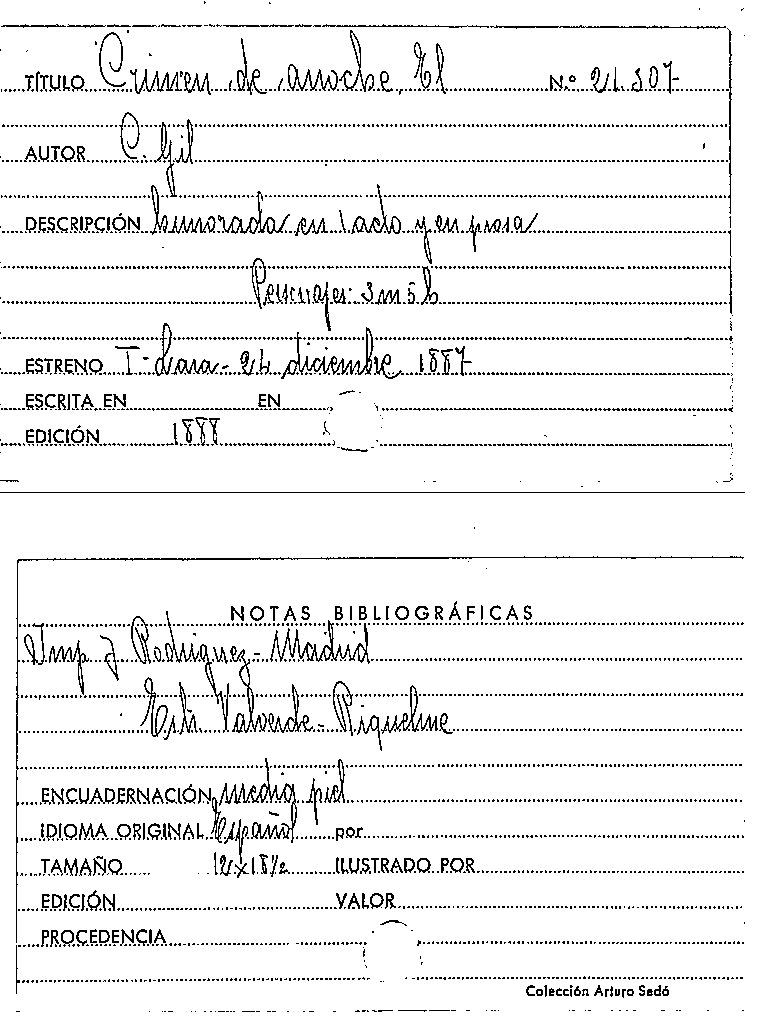 TÍTULO Crimen de anoche, El N.º 21.307-
AUTOR C. Gil
DESCRIPCIÓN humorada en 1 acto y en prosa
Personajes: 3 m 5 h
ESTRENO T- Lara - 21 diciembre 1887-
ESCRITA EN EN
EDICIÓN 1888
NOTAS BIBLIOGRÁFICAS
Imp J. Rodriguez - Madrid
Valverde - Riquelme
ENCUADERNACIÓN media piel
IDIOMA ORIGINAL Español por
TAMAÑO 12 x 18 1/2 ILUSTRADO POR
EDICIÓN VALOR
PROCEDENCIA
Colección Arturo Sedó